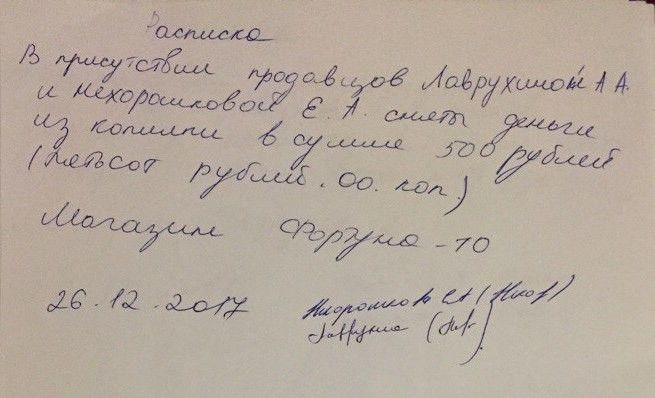 Расписка
В присутствии продавцов Лаврухиной А А.
и Нехорошковой Е. А. сняты деньги
из копилки в сумме 500 рублей
(пятьсот рублей. 00. коп.)
Магазин Фортуна-10
26.12.2017